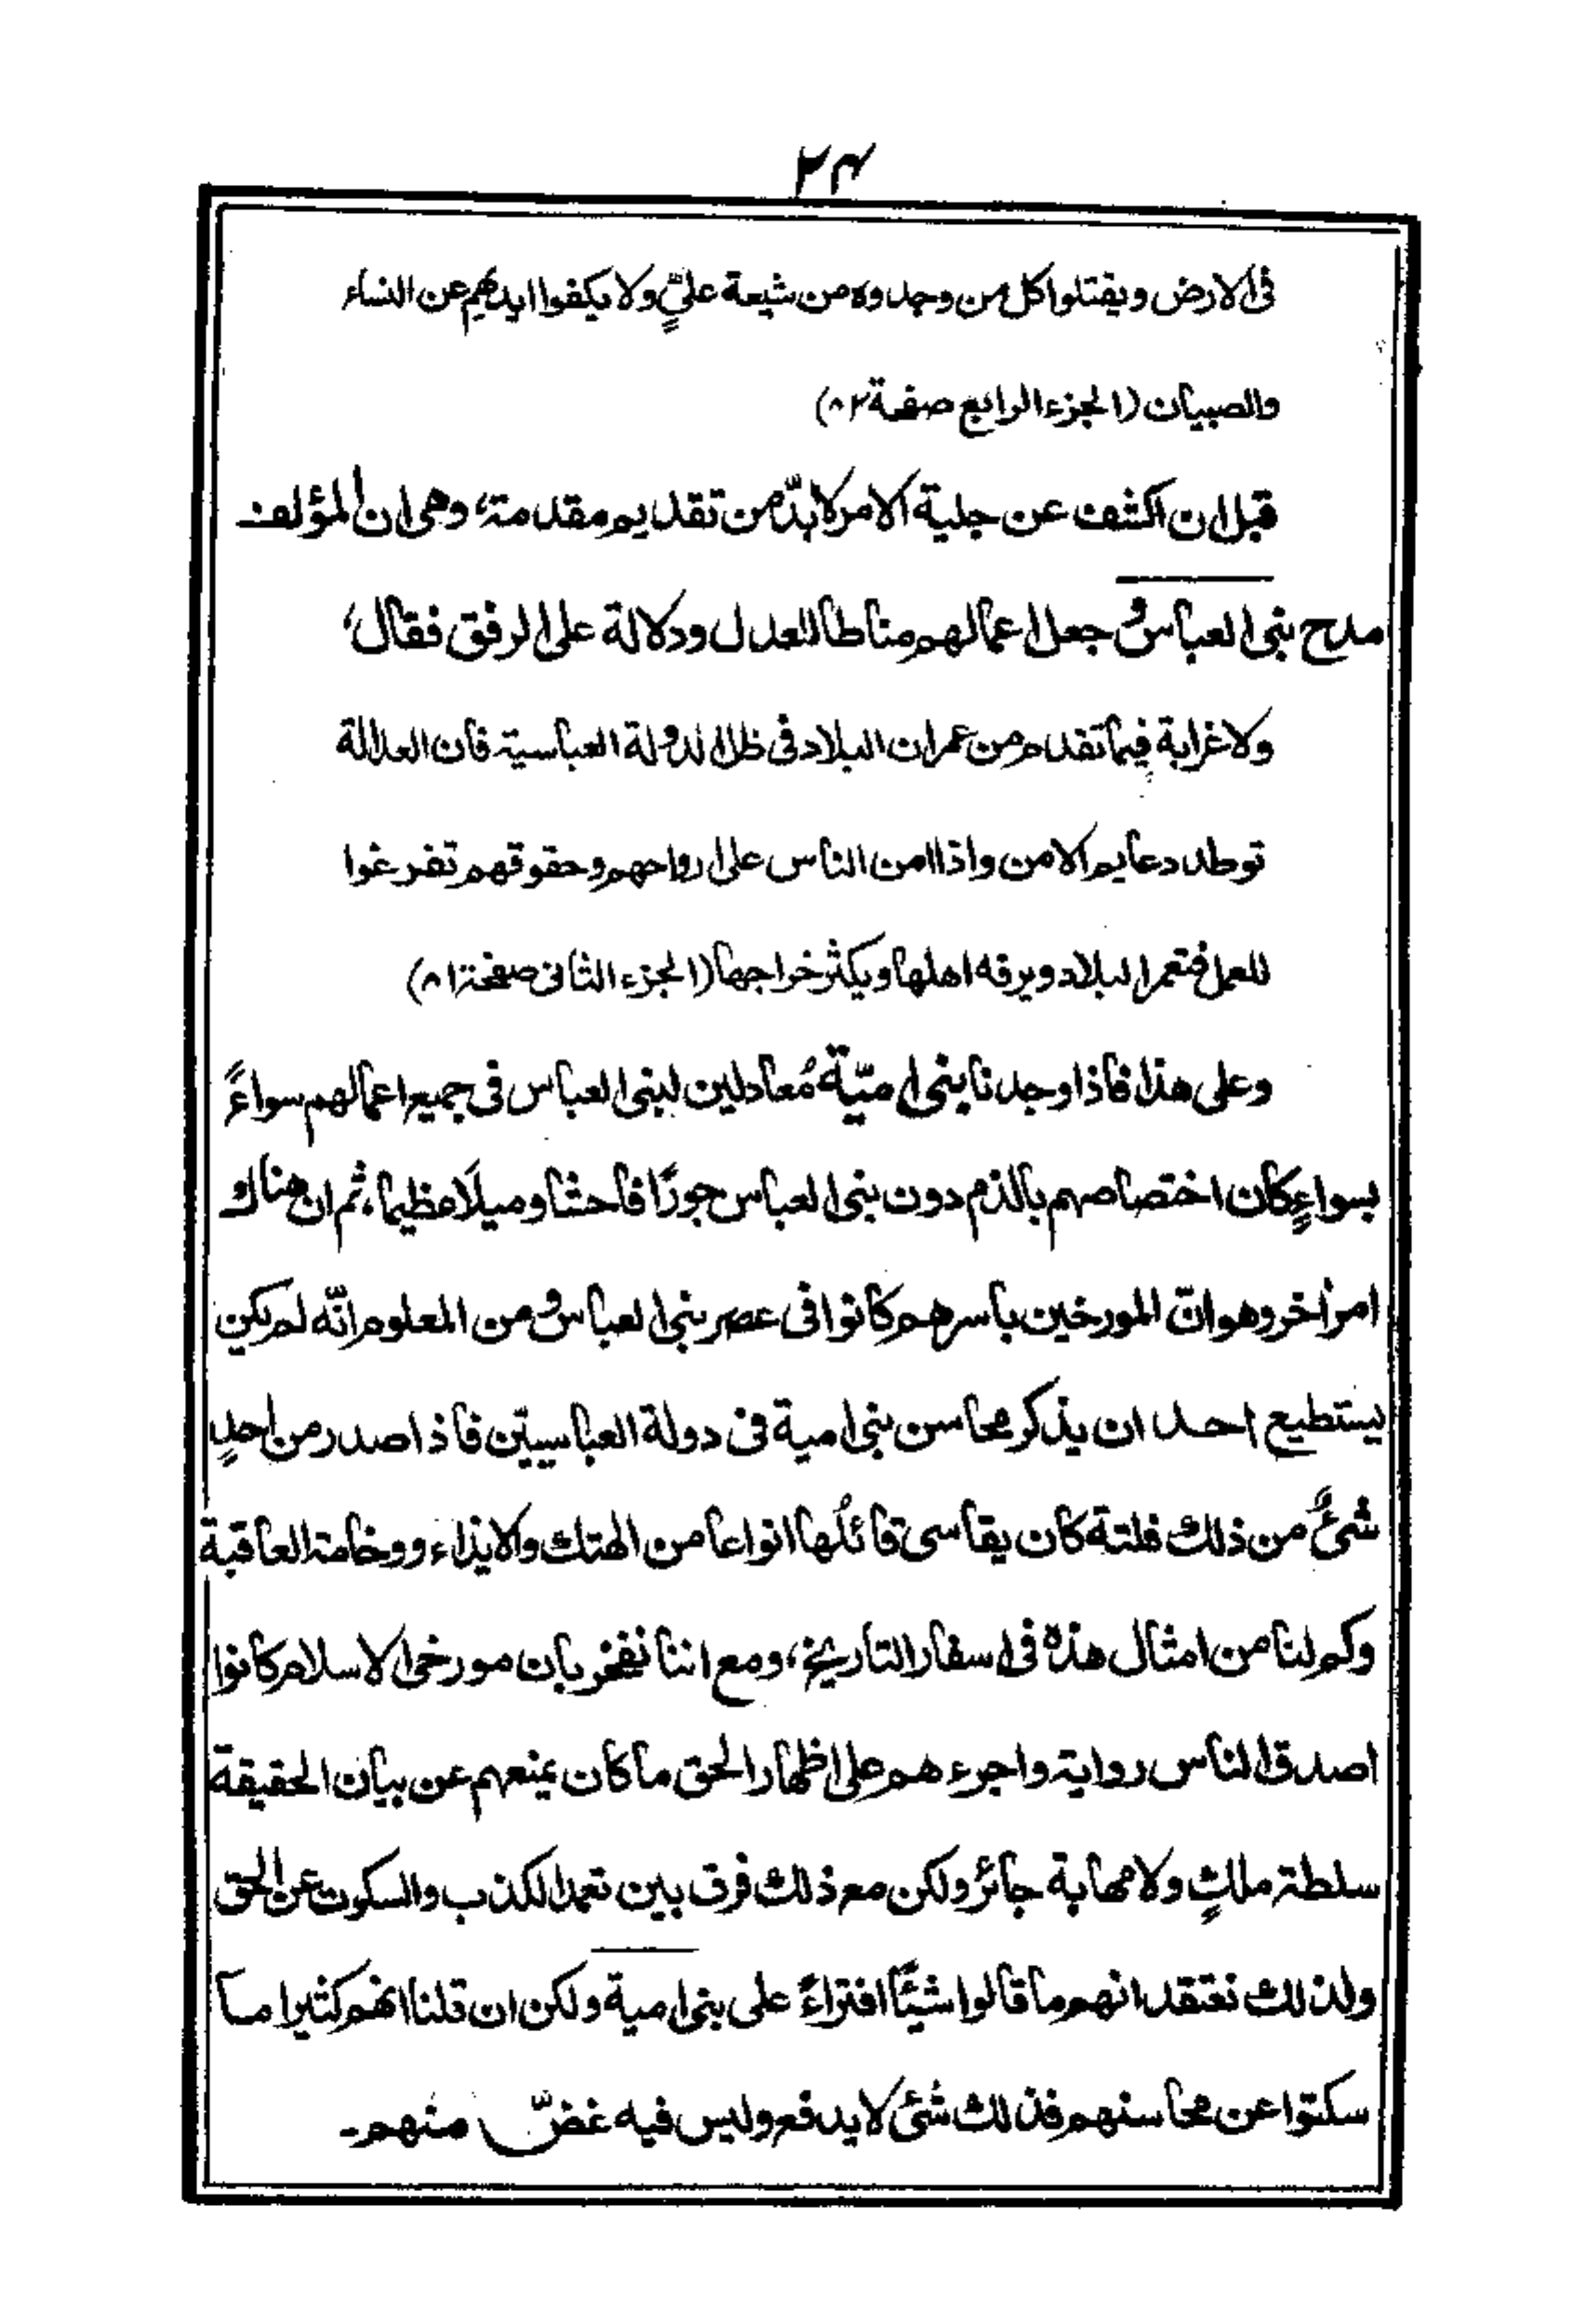 ٢٣
فى الارض ويقتلوا كل من وجدوه من شيعة علىٍّ ولا يكفوا ايديهم عن النساء
والصبيان (الجزء الرابع صفحة ٨٢)
قبل ان اكشف عن جلية الامر لابدّ من تقديم مقدمة، وهى ان المؤلف
مدح بنى العباس وجعل اعمالهم مناطا للعدل ودلالة على الرفق فقال،
ولا غرابة فيما تقدم من عمران البلاد فى ظل الدولة العباسية فان العدالة
توطد دعايم الامن واذا امن الناس على ارواحهم وحقوقهم تفرغوا
للعمل فتعمر البلاد ويرفه اهلها ويكثر خراجها (الجزء الثانى صفحة ٨١)
وعلى هذا فاذا وجدنا بنى اميّة مُعادلين لبنى العباس فى جميع اعمالهم سواءً
بسواءٍ كان اختصاصهم بالذم دون بنى العباس جورًا فاحشا وميلًا عظيما، ثم ان هناك
امرا اخر وهو انّ المورخين باسرهم كانوا فى عصر بنى العباس ومن المعلوم انّه لم يكن
يستطيع احد ان يذكر محاسن بنى امية فى دولة العباسييّن فاذا صدر من احدٍ
شىءٌ من ذلك فلتة كان يقاسى قائلُها انواعا من الهتك والايذاء ووخامة العاقبة
وكم لنا من امثال هذه فى اسفار التاريخ، ومع اننا نفخر بان مورخى الاسلام كانوا
اصدق الناس رواية واجرء هم على اظهار الحق ما كان يمنعهم عن بيان الحقيقة
سلطة ملكٍ ولا مهابة جائر ولكن مع ذلك فرق بين تعمد الكذب والسكوت عن الحق
ولذلك نعتقد انهم ما قالوا شيئًا افتراءً على بنى امية ولكن ان قلنا انهم كثيرا ما
سكتوا عن محاسنهم فذلك شئ لا يدفع وليس فيه غضّ منهم۔